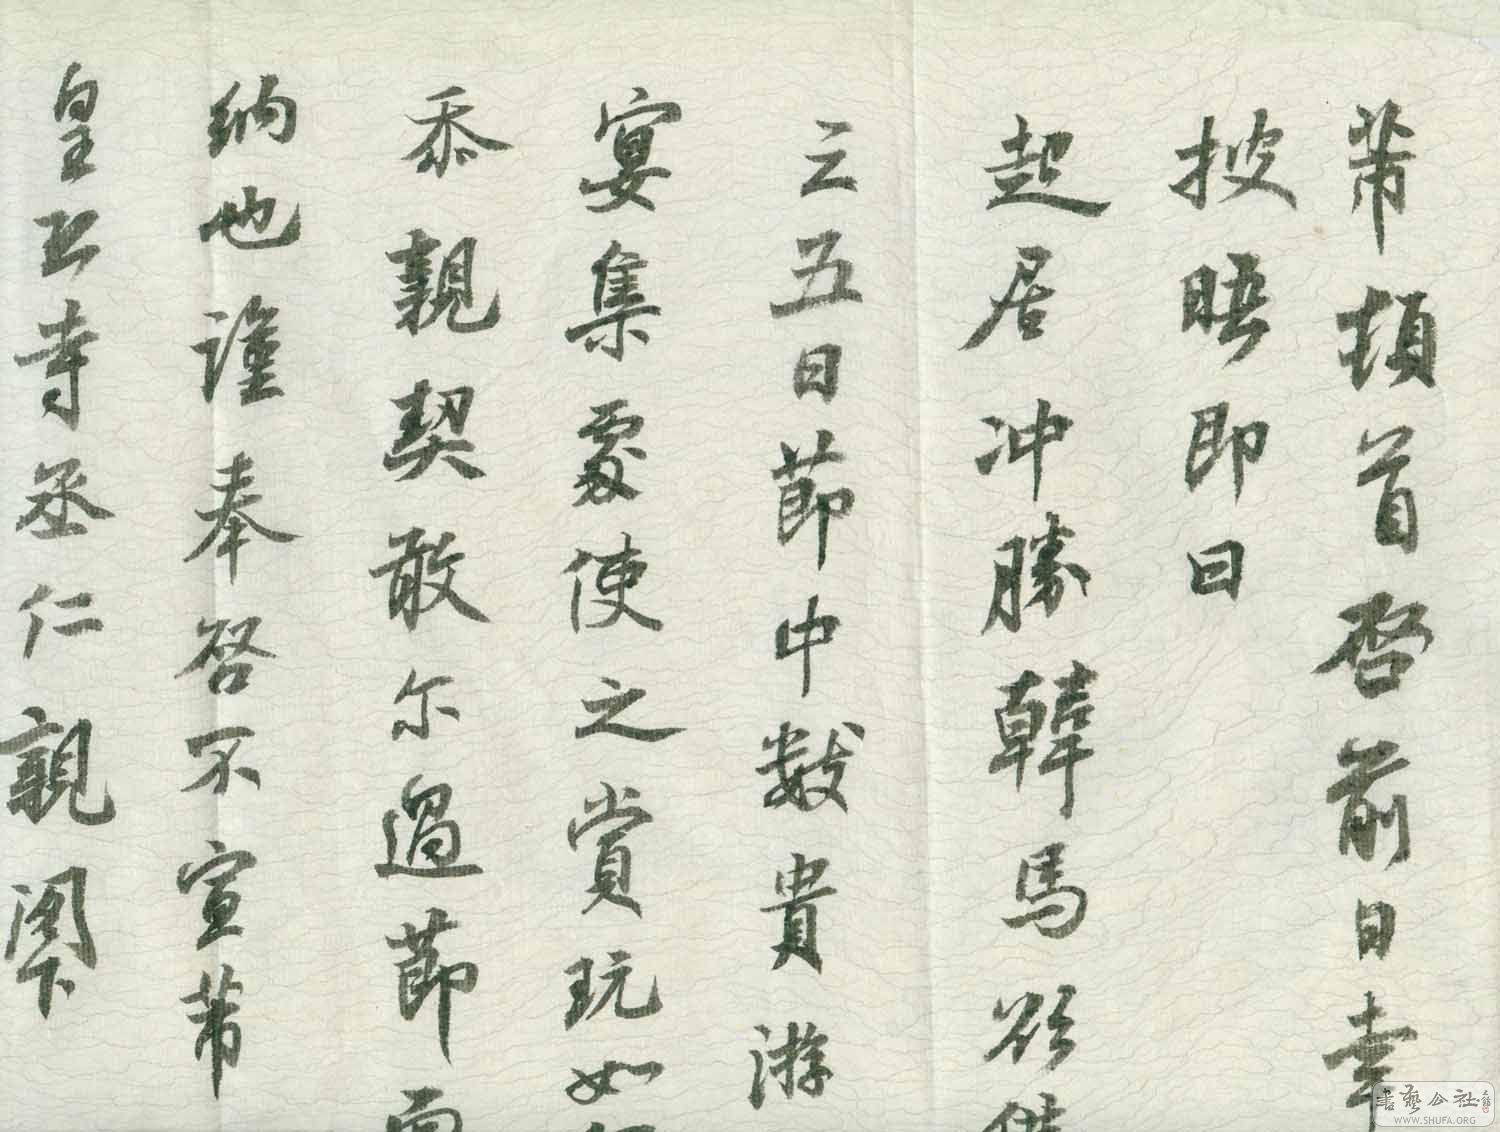 芾頓首啓前日幸
披晤即日
起居冲勝韓馬欲借
三五日節中數貴游
宴集處使之賞玩如何
忝親契敢尔過節
納也謹奉啓不宣芾
皇公寺丞仁親阁下
書藝公社
WWW.SHUFA.ORG